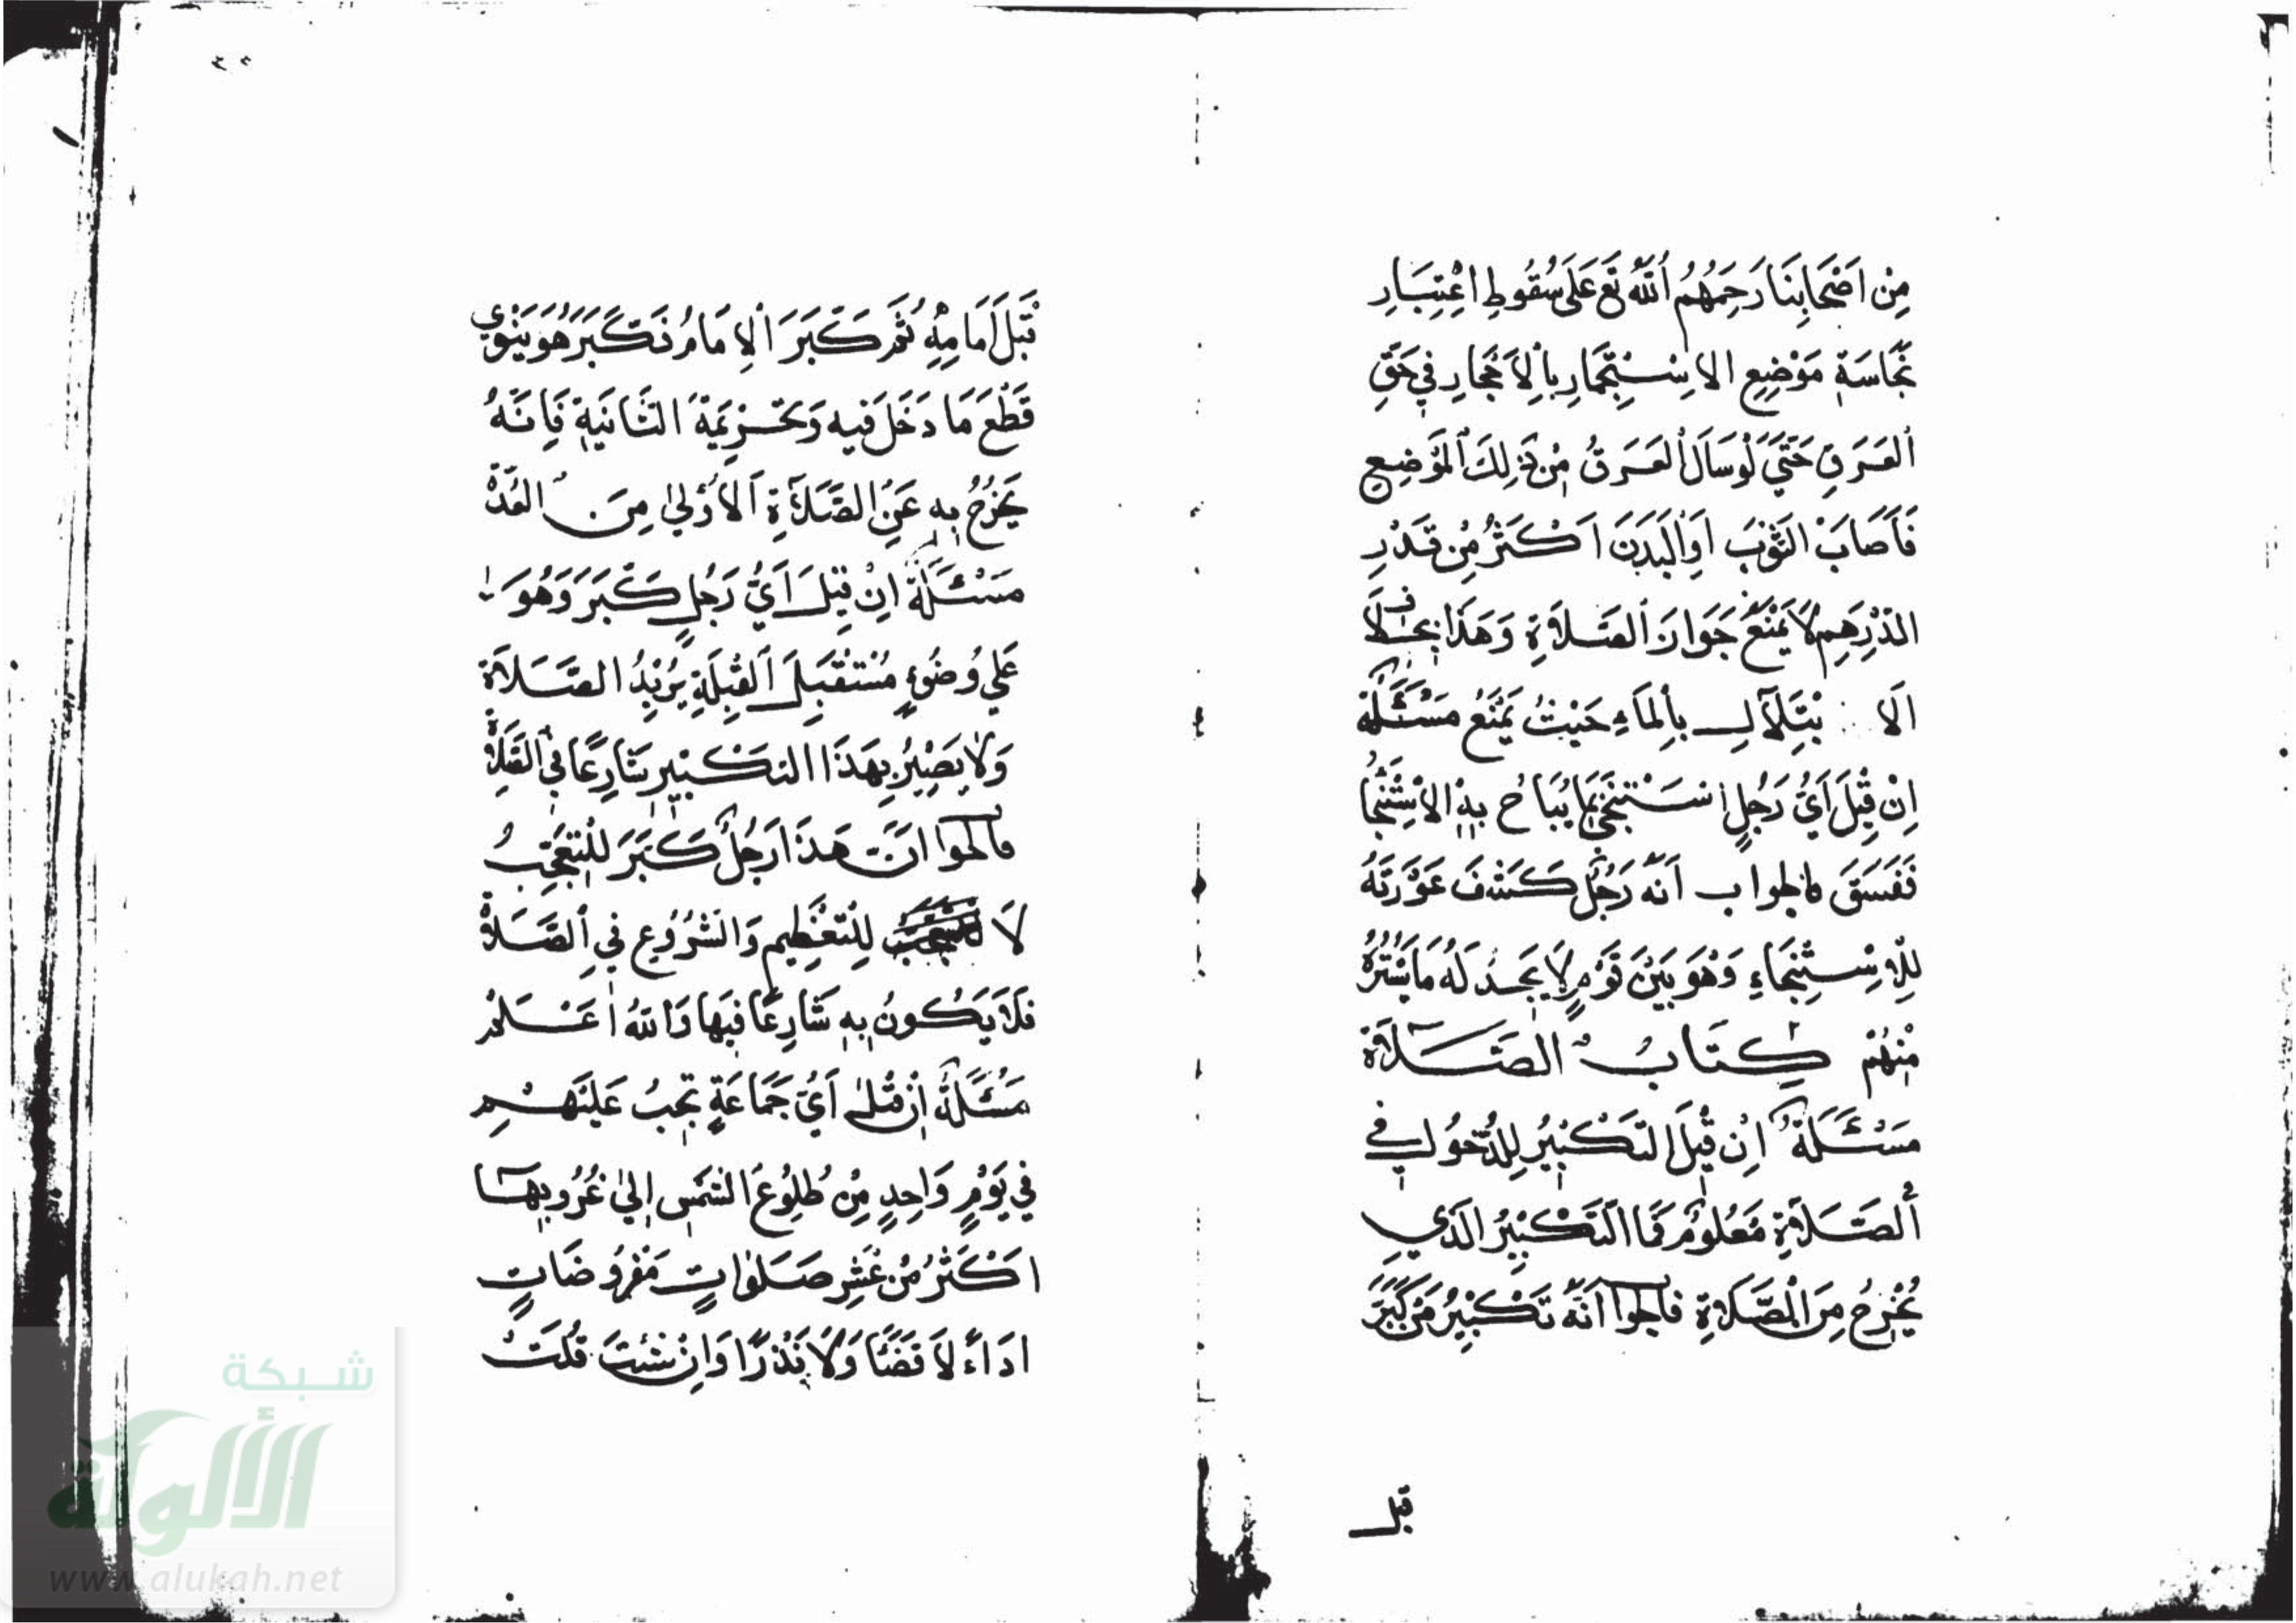 مِنْ اَصْحَابِنَا رَحِمَهُمُ اللّٰهُ تَع عَلَى سُقُوطِ اعْتِبَارِ
نَجَاسَةِ مَوْضِعِ الاِسْتِجْمَارِ بِالاَحْجَارِ فِي حَقِّ
العَرَقِ حَتَّى لَوْسَالَ العَرَقُ مِنْ ذٰلِكَ المَوْضِعِ
فَاَصَابَ الثَّوْبَ اَوِالبَدَنَ اَكْثَرُ مِنْ قَدْرِ
الدِّرْهَمِ لاَيَمْنَعُ جَوَازَ الصَّلاَةِ وَهَذَا بِخِلاَف
الا بْتِلاَلِ بِالمَاءِ حَيْثُ يَمْنَعُ مَسْئَلَةٌ
اِنْ قِيْلَ اَيُّ رَجُلٍ اسْتَنْجَى بِمَا يُبَاحُ بِهِ الاسْتِنْجَا
فَفَسَقَ فالجواب اَنَّهُ رَجُلٌ كَشَفَ عَوْرَتَهُ
لِلاِسْتِنْجَاءِ وَهُوَ بَيْنَ قَوْمٍ لاَيَجِدُ لَهُ مَايَسْتُرُهُ
مِنْهُمْ كِتَابُ الصَّلاَةِ
مَسْئَلَةٌ اِنْ قِيْلَ التَكْبِيْرُ لِلدُّخُولِ فِي
الصَّلاَةِ مَعْلُومٌ فَمَا التَكْبِيْرُ الَّذِي
يُخْرِجُ مِنَ الصَّلاَةِ فالجوا اَنَّهُ تَكْبِيْرُ مَنْ كَبَّرَ
قبل
٣٢
قَبْلَ اَمَامِهِ ثُمَّ كَبَّرَ الاِمَامُ فَكَبَّرَ هُوَ يَنْوِي
قَطْعَ مَا دَخَلَ فيه وَتَحْرِيْمَةَ الثَّانِيَةِ فَاِنَّهُ
يَخْرُجُ بِهِ عَنِ الصَّلاَةِ الاُوْلٰى مِنَ العُدَّةْ
مَسْئَلَةٌ اِنْ قِيْلَ اَيُّ رَجُلٍ كَبَّرَ وَهُوَ
عَلي وُضُوْءٍ مُسْتَقْبِلَ القِبْلَةِ يُرِيْدُ الصَّلاَةَ
وَلاَ يَصِيْرُ بِهَذَا التَكْبِيْرِ شَارِعًا فِي الصَّلاَةْ
فالجوا اَنَّ هَذَا رَجُلٌ كَبَّرَ لِلْتَعَجُّبِ
لاَ لِلْتَعْظِيمِ وَالشُرُوْعِ فِي الصَّلاَةْ
فلاَ يَكُونُ بِهِ شَارِعًا فيهَا وَاللهُ اَعْلَمُ
مَسْئَلَةٌ اِنْ قِيْلَ اَيُّ جَمَاعَةٍ تجِبُ عَلَيْهِمْ
فِي يَوْمٍ وَاحِدٍ مِنْ طُلُوْعَ الشَّمْسِ اِلىٰ غُرُوبِهَا
اَكْثَرُ مِنْ عَشْرِ صَلَوٰاتٍ مَفْرُوضَاتٍ
اَدَاءً لاَ قَضًا وَلاَ نَذْرًا وَاِنْ شِئْتَ قُلْتَ
شبكة
الألوكة
www.alukah.net